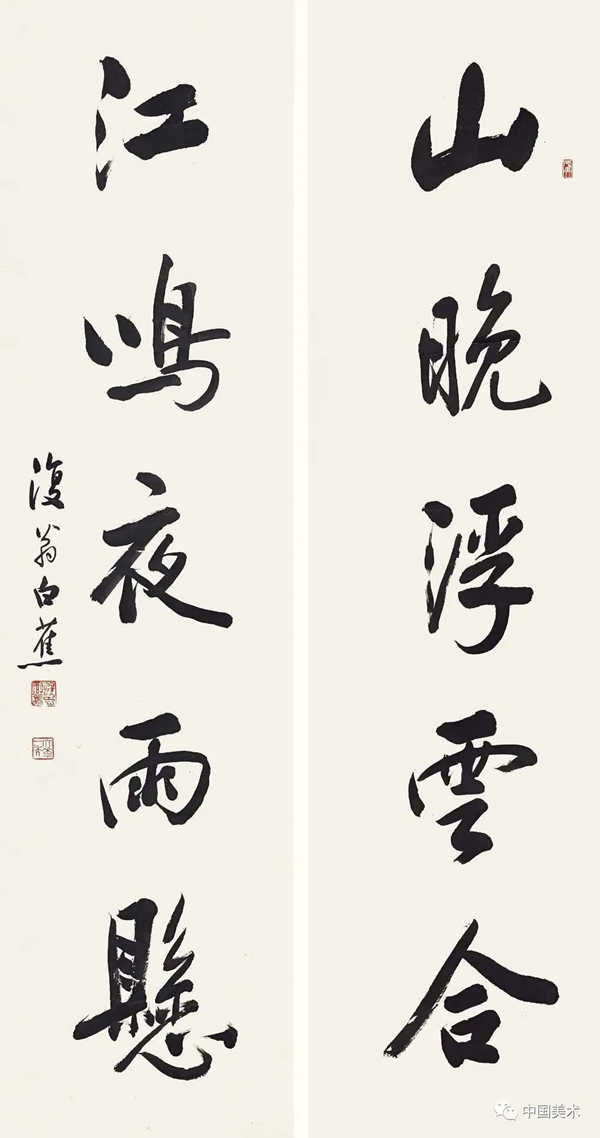 山晚浮雲合
江鳴夜雨懸
復翁白蕉
中国美术